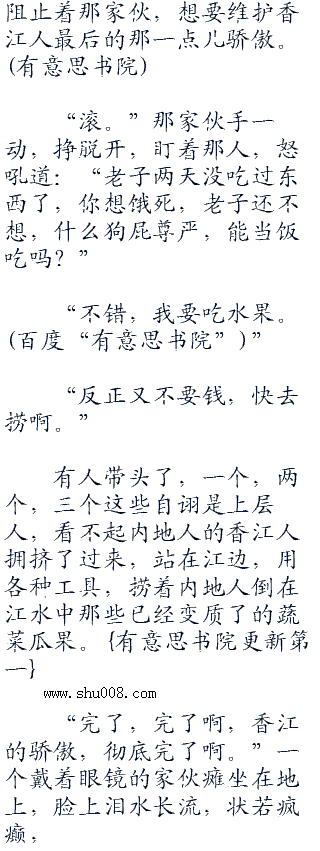 阻止着那家伙，想要维护香
江人最后的那一点儿骄傲。
(有意思书院)
“滚。”那家伙手一
动，挣脱开，盯着那人，怒
吼道：“老子两天没吃过东
西了，你想饿死，老子还不
想，什么狗屁尊严，能当饭
吃吗？”
“不错，我要吃水果。
(百度“有意思书院”)”
“反正又不要钱，快去
捞啊。”
有人带头了，一个，两
个，三个这些自诩是上层
人，看不起内地人的香江人
拥挤了过来，站在江边，用
各种工具，捞着内地人倒在
江水中那些已经变质了的蔬
菜瓜果。{有意思书院更新第
一}
www.shu008.com
“完了，完了啊，香江
的骄傲，彻底完了啊。”一
个戴着眼镜的家伙瘫坐在地
上，脸上泪水长流，状若疯
癫，